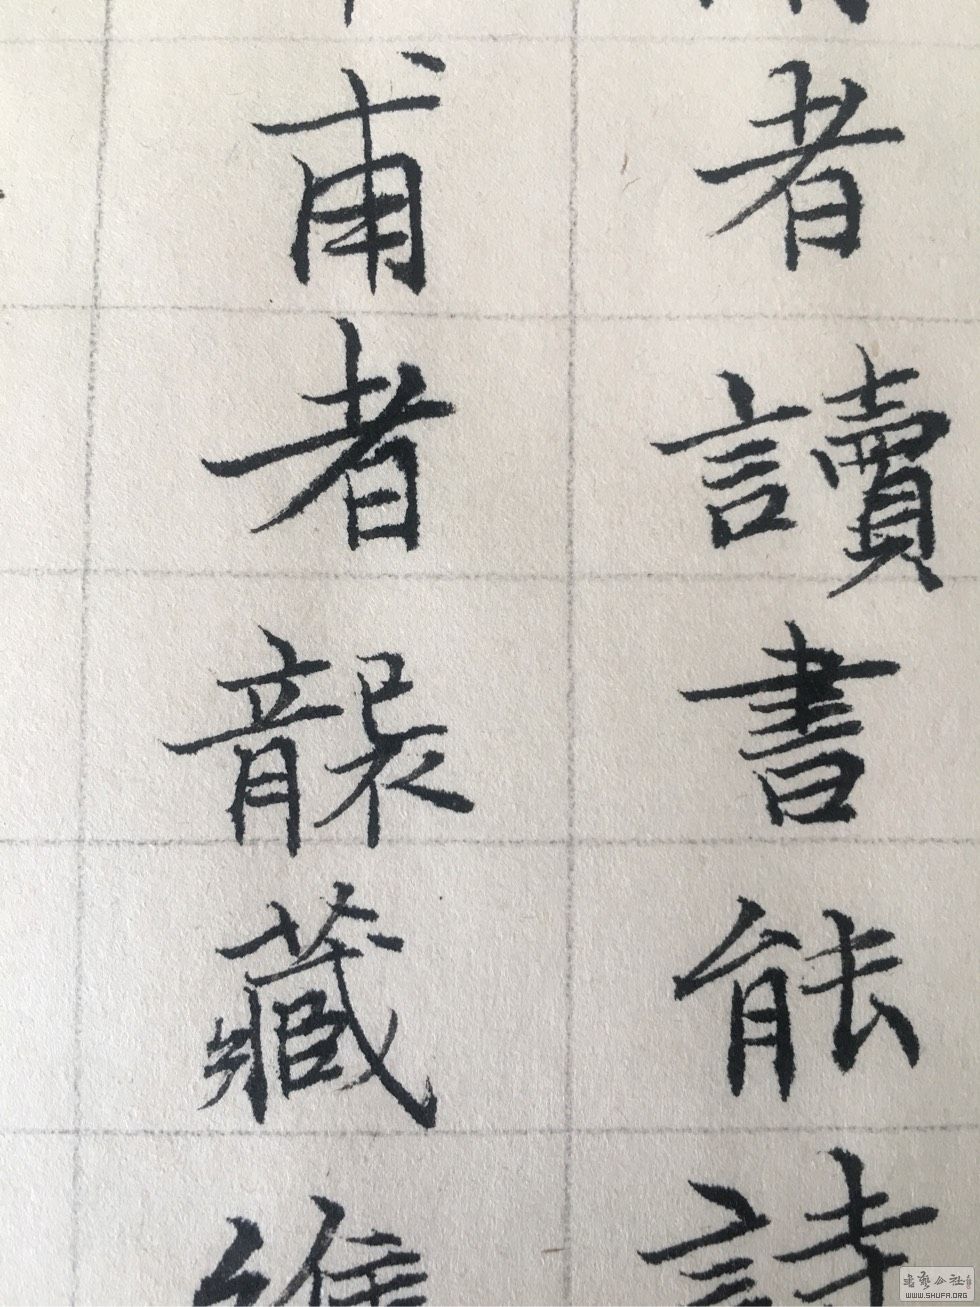 者讀書能詩
甫者襲藏維
書藝公社
WWW.SHUFA.ORG